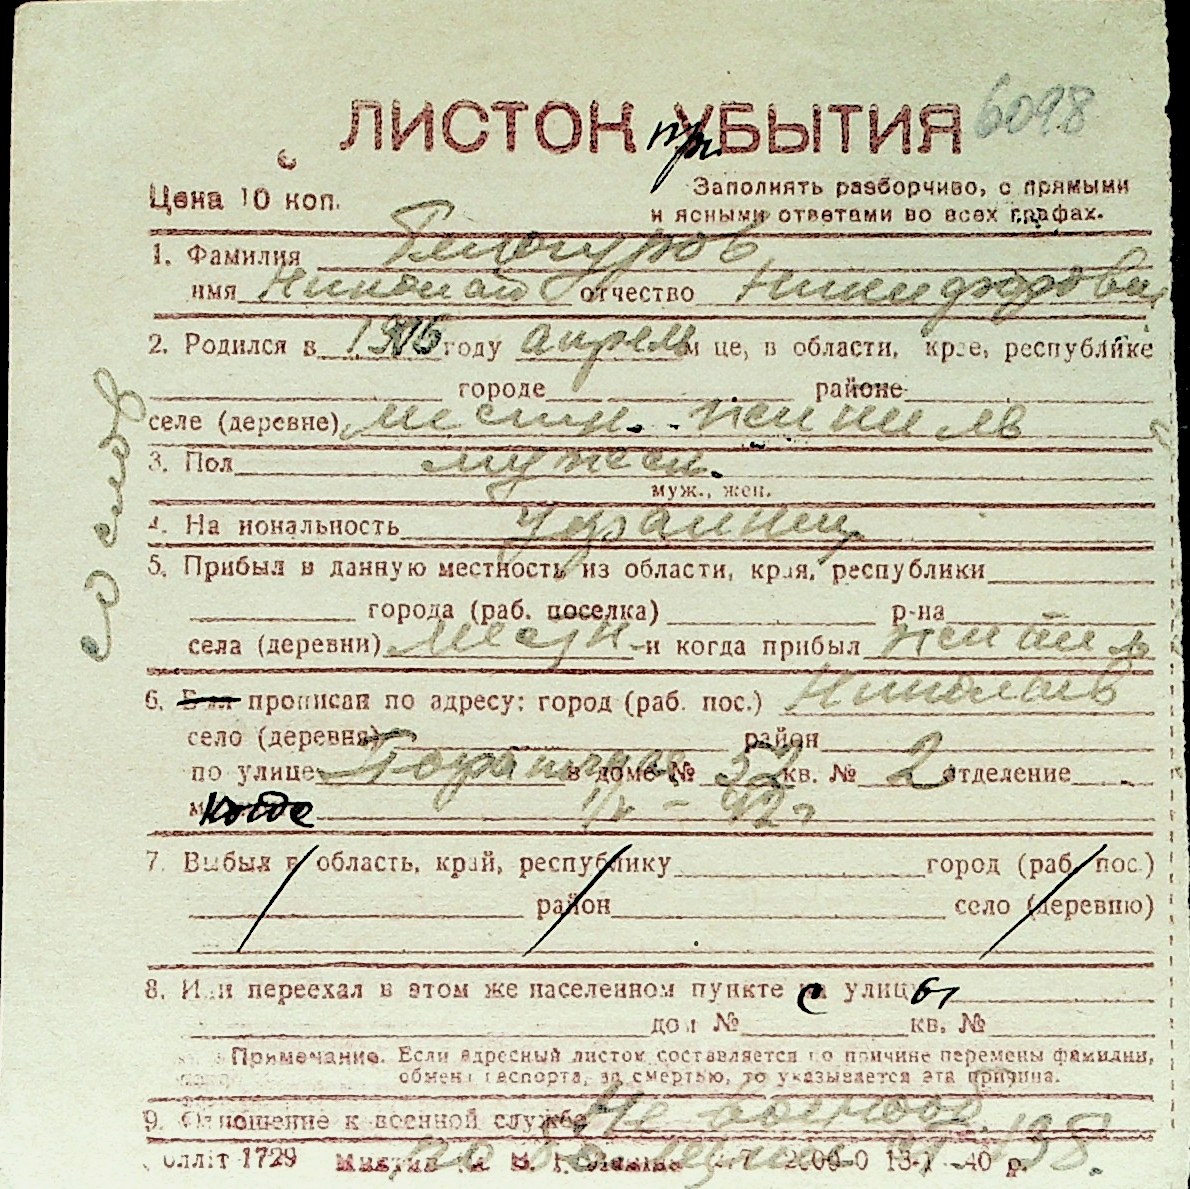 6098
ЛИСТОК пр УБЫТИЯ
Цена 10 коп.
Заполнять разборчиво, с прямыми
и ясными ответами во всех графах.
1. Фамилия Белогуров
имя Николай отчество Никифорович
2. Родился в 1906 году апрель м це, в области, крае, республике
городе районе
селе (деревне) местн.
3. Пол мужск.
муж., жен.
4. На иональность украинец
5. Прибыл в данную местность из области, края, республики
города (раб. поселка) р-на
села (деревни) местн и когда прибыл
6. Был прописан по адресу: город (раб. пос.) Николаев
село (деревня) район
по улице Пограничная в доме № 52 кв. № 2 отделение
когда 42 г
7. Выбыл в область, край, республику город (раб. пос.)
район село (деревню)
8. Или переехал в этом же населенном пункте с улицы
дом № кв. №
Примечание. Если адресный листок составляется по причине перемены фамилии,
обмена паспорта, за смертью, то указывается эта причина.
9. Отношение к военной службе Не военнооб.
1729 138.
со слов